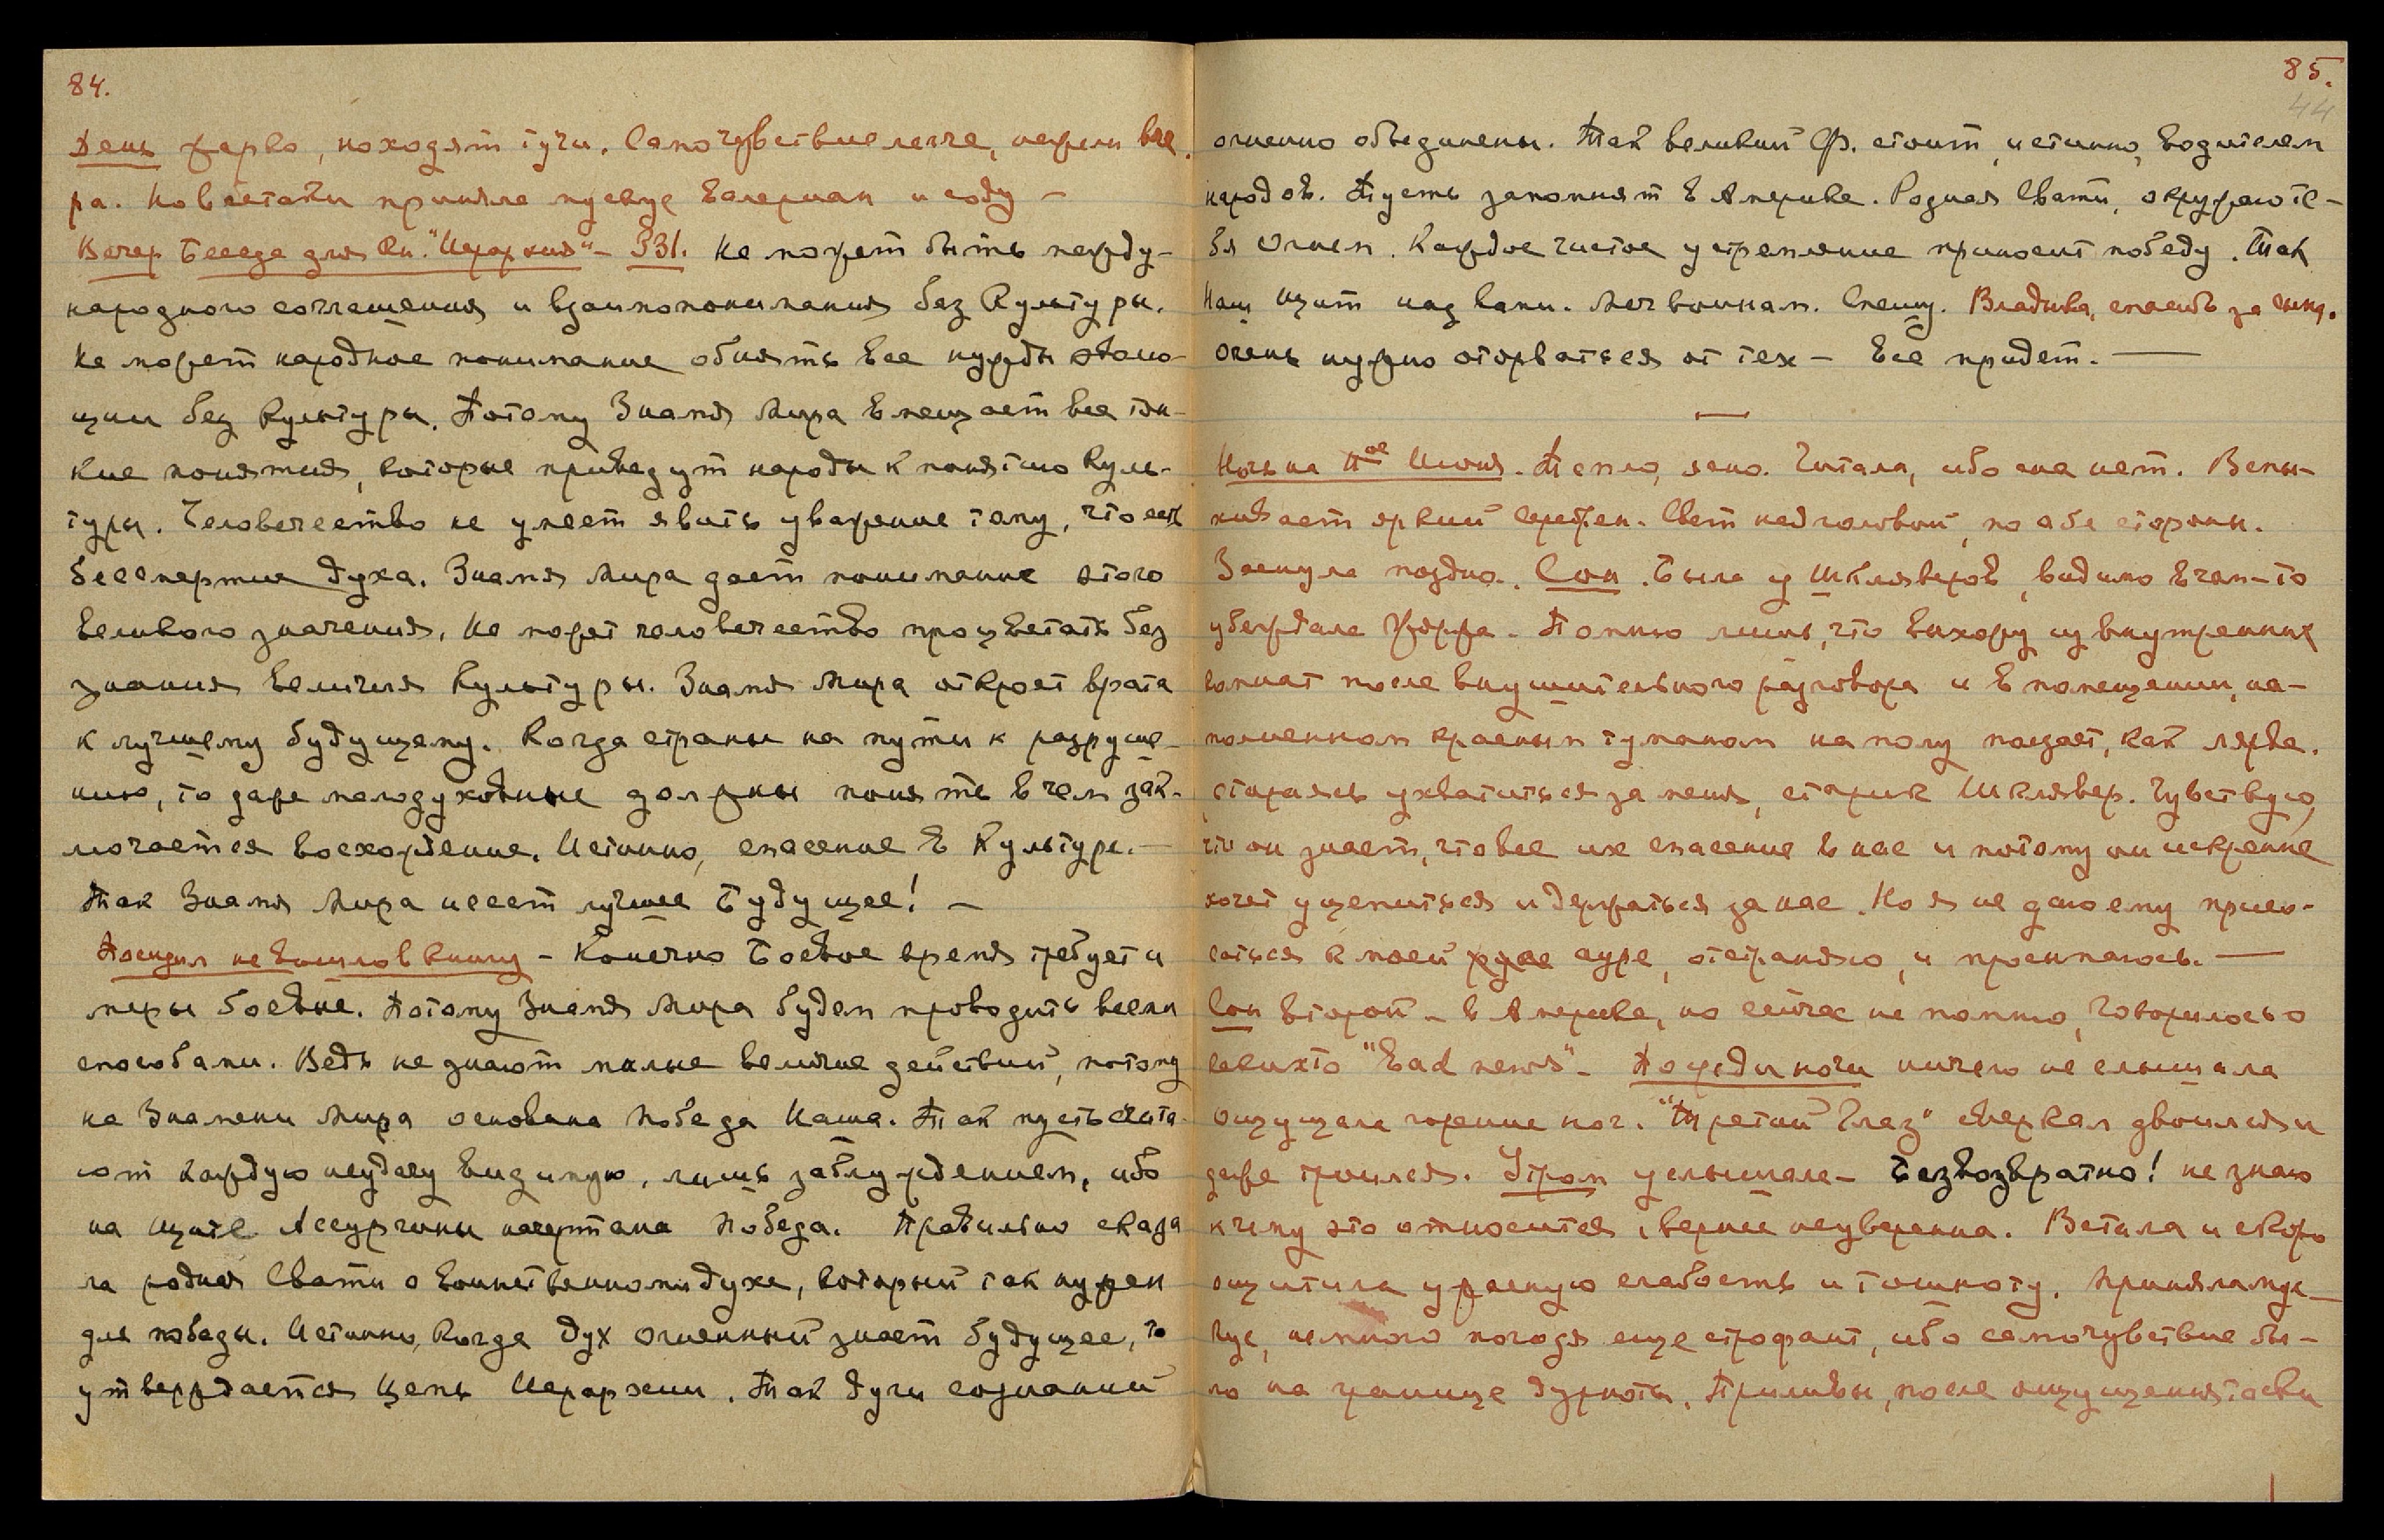 84.
День жарко, находят тучи. Самочувствие легче, нежели вче-
ра. Но всетаки приняла мускус Валериан и соду —
Вечер Беседа для Кн. "Иерархия" – §31. Не может быть между-
народного соглашения и взаимопонимания без Культуры.
Не может народное понимание обнять все нужды эволю-
ции без Культуры. Потому Знамя Мира вмещает все тон-
кие понятия, которые приведут народы к понятию Куль-
туры. Человечество не умеет явить уважение тому, что есть
бессмертие духа. Знамя Мира дает понимание этого
великого значения. Не может человечество процветать без
знания величия Культуры. Знамя Мира откроет врата
к лучшему будущему. Когда страны на пути к разруше-
нию, то даже малодуховные должны понять в чем зак-
лючается восхождение. Истинно, спасение в Культуре. —
Так Знамя Мира несет лучшее Будущее! —
не вошло в книгу – Конечно Боевое время требует и
меры боевые. Потому Знамя Мира будем проводить всеми
способами. Ведь не знают малые величие действий, потому
на Знамени Мира основана Победа Наша. Так пусть счита-
ют каждую неудачу видимую, лишь заблуждением, ибо
на щите Ассургины начертана Победа. Правильно сказа
ла родная Свати о воинственном духе, который так нужен
для победы. Истинно, Когда дух огненный знает будущее, то
утверждается Цепь Иерархии. Так Лучи сознаний
85.
44
огненно объединены. Так великий Ф. стоит, истинно, водителем
народов. Пусть запомнят в Америке. Родная Свати, окружаю те-
бя Огнем. Каждое чистое устремление приносит победу. Так
Наш щит над вами. Меч воинам. Спешу. Владыка, спасибо за
Очень нужно оторваться от тех – Все придет. —
Ночь на Июня. Тепло, ясно. Читала, ибо сна нет. Вспы-
хивает яркий Свет над головой, по обе стороны.
Заснула поздно. Сон. Была у Шкляверов, видимо в чем-то
убеждала Жоржа. Помню лишь, что выхожу из внутренних
комнат после внушительного разговора и в помещении, на-
полненном красным туманом на полу ползает, как лярва,
стараясь ухватиться за меня, старик Шклявер. Чувствую,
что он знает, что все их спасение в нас и потому он искренне
хочет уцепиться и держаться за нас. Но я не даю ему прико-
саться к моей ауре, отстраняю, и просыпаюсь. —
Сон второй – в Америке, но сейчас не помню, Говорилось о
"Bad news" – Посреди ночи ничего не слышала
ощущала горение ног. "Третий Глаз" сверкал двоился и
даже троился. Утром услышала – Безвозвратно! не знаю
к чему это относится, вернее неуверенна. Встала и скоро
ощутила ужасную слабость и тошноту. Приняла мус-
кус, немного погодя еще строфант, ибо самочувствие бы-
ло на границе дурноты. Приливы, после ощущения тоски